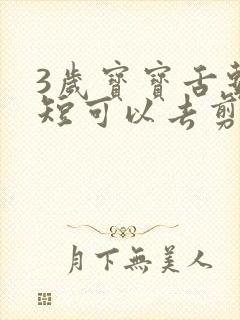 3歲寶寶舌
短可以去剪
月下無美人